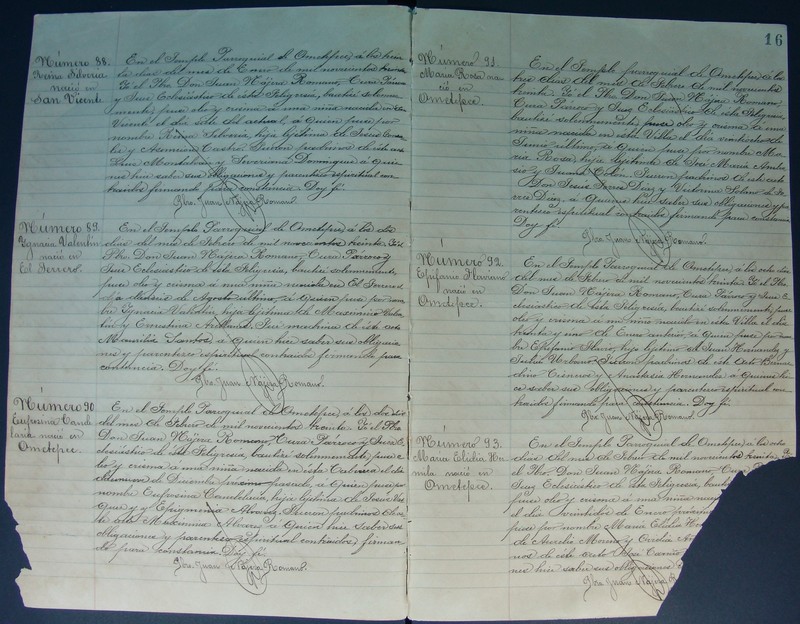 Número 88.
Reina Silveria
nació en
San Vicente
En el Temple Parroquial de Ometepec, á los trein
ta dias del mes de Enero de mil novecientos treinta
Yo el Pbro. Don Juan Nájera Romano, Cura Párroco
y Juez Eclesiástico de esta Feligresia, bauticé solemne
mente, puse oleo y crisma á una niña nacida en San
Vicente el dia siete del actual, á quien puse por
nombre Reina Silveria, hija legitima de Jesus
y Asención Castro. Siendo padrinos de este acto
y Severiana Dominguez á quie
nes hice saber sus obligaciones y parentesco espiritual con
traidos firmando para constancia Doy fé.
Pbro. Juan Nájera Romano.
Número 89.
Ygnacia Valentin
nació en
El Terrero.
En el Temple Parroquial de Ometepec, á los dos
dias del mes de Febrero de mil novecientos treinta. Yo el
Pbro. Don Juan Nájera Romano, Cura Párroco y
Juez Eclesiástico de esta Feligresia, bauticé solemnemente
puse oleo y crisma á una niña nacida en El Terrero
de Agosto ultimo, á quien puse por nom
bre Ygnacia Valentin, hija legitima de Macario
y Ernestina Arellanes. Fué madrina de este acto
Marcelina Santos á quien hice saber sus obligacio
nes y parentesco espiritual contraido firmando para
constancia. Doy fé.
Pbro. Juan Nájera Romano.
Número 90.
Eufrosina Cande
laria nació en
Ometepec.
En el Temple Parroquial de Ometepec, á los dos dias
del mes de Febrero de mil novecientos treinta. Yo el Pbro.
Don Juan Nájera Romano, Cura Párroco y Juez E
clesiástico de esta Feligresia, bauticé solemnemente, puse o
leo y crisma á una niña nacida en esta Cabecera el dia
de Diciembre pasado, á quien puse por
nombre Eufrosina Candelaria, hija legitima de Jesus
y Epigmenia Alvarez. Siendo padrinos de es
te acto Maximina Alvarez á quien hice saber sus
obligaciones y parentesco espiritual contraidos, firman
do para constancia Doy fé.
Pbro. Juan Nájera Romano.
16
Número 91.
Maria Rosa na
ció en
Ometepec.
En el Temple Parroquial de Ometepec á los
tres dias del mes de Febrero de mil novecientos
treinta. Yo el Pbro. Don Juan Nájera Romano,
Cura Párroco y Juez Eclesiástico de esta Feligresia,
bauticé solemnemente puse oleo y crisma á una
niña nacida en esta Villa el dia veintidos de
Junio ultimo, á quien puse por nombre Ma
ria Rosa, hija legitima de José Maria Ambro
sio y Juana Colon. Siendo padrinos de este acto
Don Jesus Torres Diaz y Victorina Solano de To
rres Diaz, á quienes hice saber sus obligaciones y pa
rentesco espiritual contraido firmando para constancia
Doy fé.
Pbro. Juan Nájera Romano.
Número 92.
Epifanio Flaviano
nació en
Ometepec.
En el Temple Parroquial de Ometepec, á los ocho dias
del mes de Febrero de mil novecientos treinta. Yo el Pbro.
Don Juan Nájera Romano, Cura Párroco y Juez E
clesiástico de esta Feligresia, bauticé solemnemente, puse
oleo y crisma á un niño nacido en esta Villa el dia
treinta y uno de Enero anterior, á quien puse por nom
bre Epifanio Flavio, hijo legitimo de Juan Hernandez y
Urbano. Siendo padrinos de este acto Bernar
dino Cisneros y Anastasia Hernandez á quienes hi
ce saber sus obligaciones y parentesco espiritual con
traidos firmando para constancia. Doy fé.
Pbro. Juan Nájera Romano.
Número 93.
Maria Elidia He
rmila nació en
Ometepec.
En el Temple Parroquial de Ometepec, á los ocho
dias del mes de Febrero de mil novecientos treinta, Yo
el Pbro. Don Juan Nájera Romano, Cura
Juez Eclesiástico de esta Feligresia, bauticé
puse oleo y crisma á una niña naci
el dia veintidos de Enero
puse por nombre Maria Elidia
de Aurelio Merino y Cecilia
nos de este acto
nes hice saber sus obligaciones
Pbro. Juan Nájera R